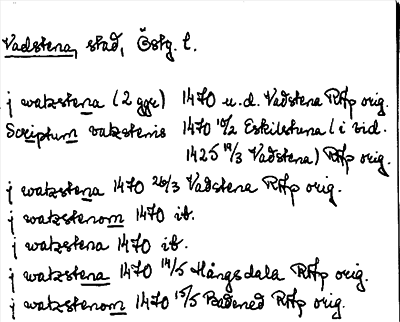 Vadstena, stad, Östg. l.
j watzstena (2 ggr) 1470 u.d. Vadstena RAp orig.
Scriptum vatzstenis 1470 10/2 Eskilstuna (i vid.
1425 19/3 Vadstena) RAp orig.
j watzstena 1470 26/3 Vadstena RAp orig.
j watzstenom 1470 ib.
j watzstena 1470 ib.
j watzstena 1470 14/5 Hångsdala RAp orig.
j watzstenom 1470 15/5 Badened RAp orig.